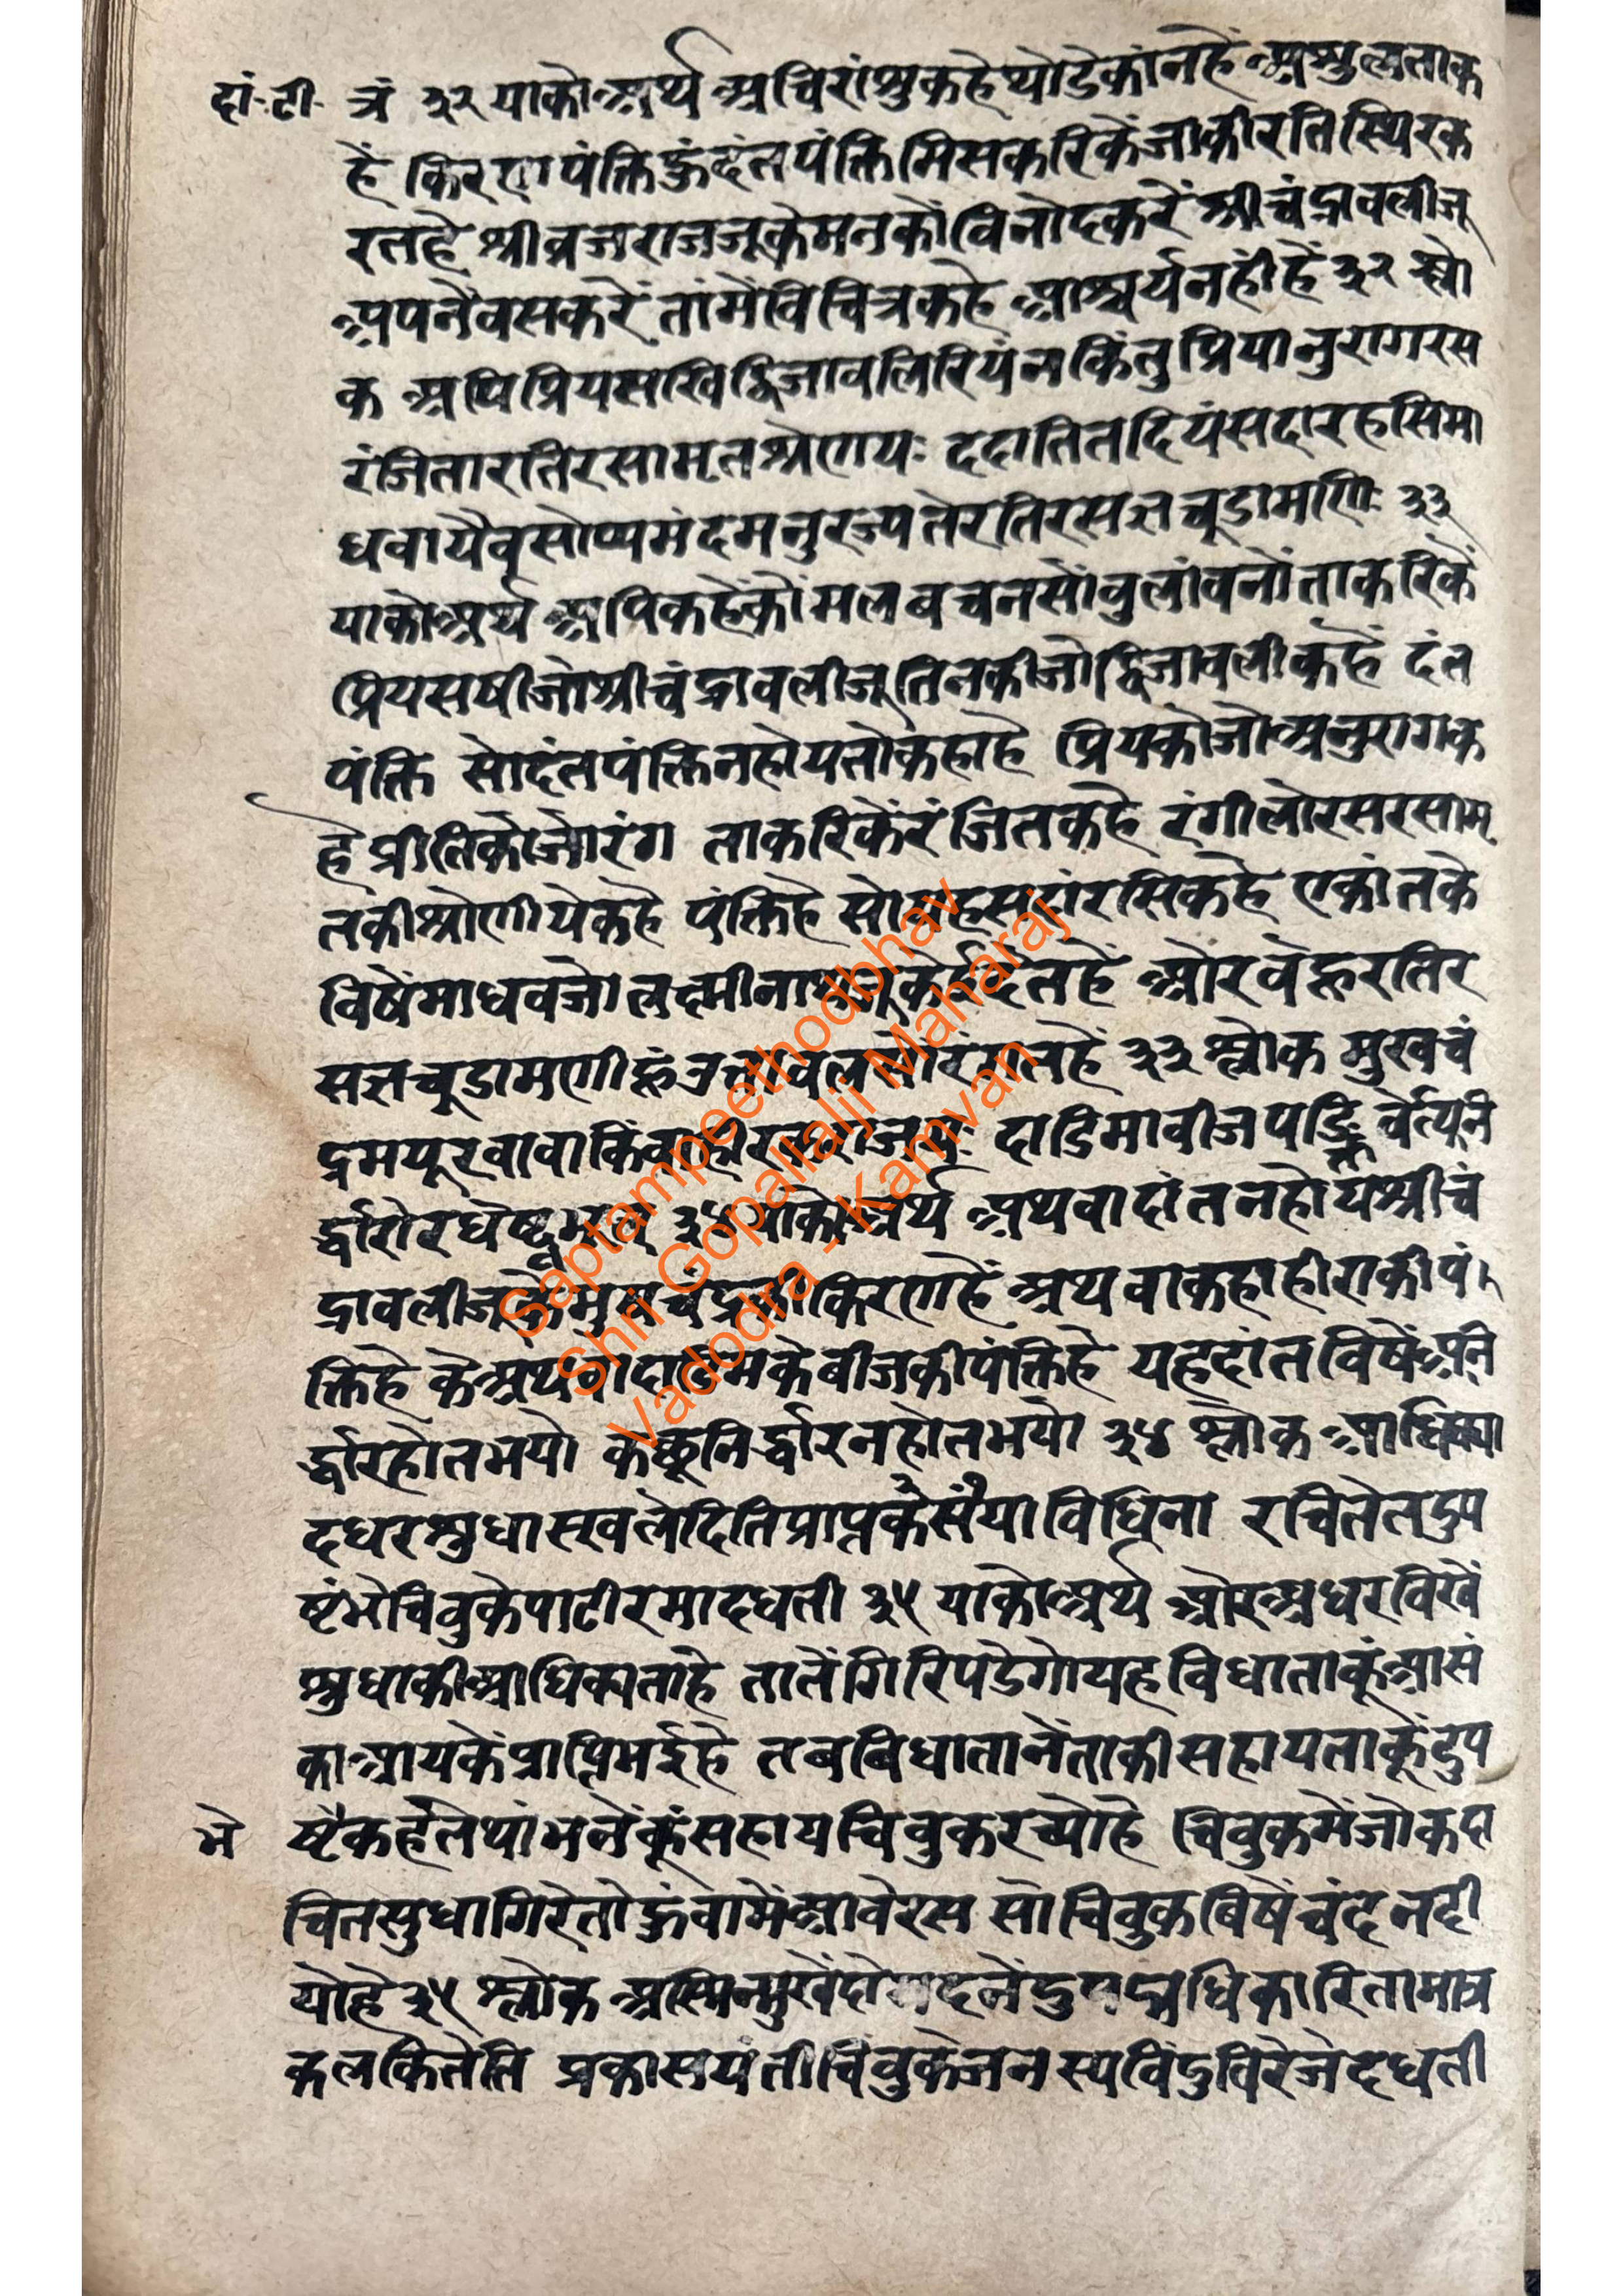 दां. टी. त्रं ३२ याको अर्थ अचिरांशु कहे थोडे कांन हें अशुलताक
हें किरण पंक्ति हूं दंत पंक्ति मिस करिकें जाकी रति स्थिर क
रत हे श्रीव्रजराजजू के मन कों विनोद करें श्रीचंद्रावलीजू
अपनें वस करें तां में विचित्र कहे आश्चर्य नहीं हें ३२ श्लो
क अपि प्रियसखि द्विजावलिरियं न किंतु प्रियानुरागरस
रंजिता रतिरसामृतश्रेणयः ददाति तदियं सदा रहसि मा
धवायैव सोप्यमंदमनुरज्यते रतिरसज्ञचूडामणिः ३३
याको अर्थ अपि कहें कोंमल बचन सों वुलांवनों ता करिकें
प्रियसषी जो श्रीचंद्रावलीजू तिनकी जो द्विजावली कहें दंत
पंक्ति सो दंत पंक्ति न होय तो कहा हे प्रिय को जो अनुराग क
हे प्रीति को जो रंग ता करिकें रंजित कहे रंगीलो रस रसामृ
त की श्रेणी ये कहे पंक्ति हे सो यह सदां रसि कहे एकांत के
विषें माधव जो लक्ष्मीनाथजू के दे देत हें ओर वे हू रतिर
सज्ञ चूडामणी हूं रंगत हें ३३ श्लोक मुखचं
द्रमयूखा वा किं वा हीरकराजयः दाडिमावीजपङ्क्तिर्वेत्यूनि
र्द्धारो रघेष्वभूत् ३४ याको अर्थ अथवा दांत न होय श्रीचं
द्रावलीजू के मुखचंद्र की किरण हें अथवा कहा हीरा की पं
क्ति हे के अथवा दाडिम के बीज की पंक्ति हे यह दांत विषें अनि
र्द्धार होत भयो कछू निर्द्धार न होत भयो ३४ श्लोक आधिक्या
दधरशुधा स्वलेदिति प्राप्त विधिना रचिते तदुप
ष्टंभे चिवुके पाटीरमादधती ३५ याको अर्थ ओर अधर विखें
शुधा की आधिक्यता हे तातें गिरि पडेगो यह विधाता कूं आसं
का आयकें प्राप्ति भई हे तब बिधाता नें ताकी सहायता कूं दुप
भे ष्टै कहें ते थांभनें कूं सहाय चिवुक रच्यो हे चिवुक में जो कदा
चित सुधा गिरे तो हूं वामें आवे रस सो चिवुक बिषें चंदन दी
यो हे ३५ श्लोक अस्मिन्मुखें अधिकारितामात्र
कलंकितेति प्रकासयंती चिवुके जनस्य विंदु विरेजे दधती